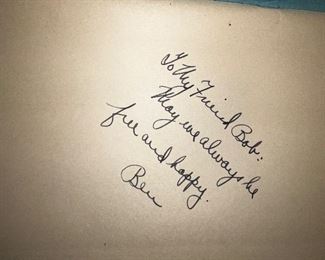 To My Friend Bob:
May we always be
free and happy.
Ben